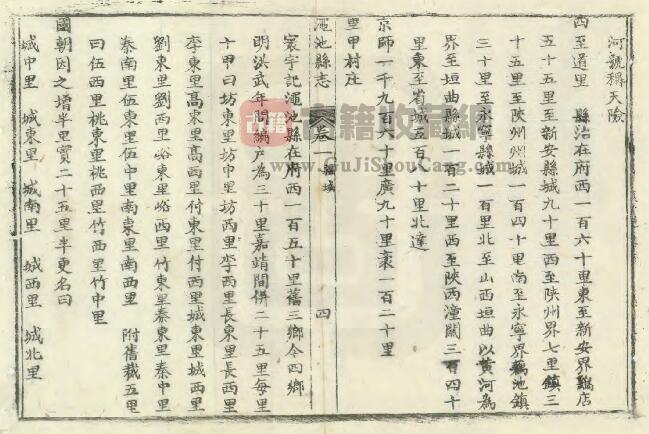 河號稱天險
四至道里　縣治在府西一百六十里東至新安界鐵店
五十五里至新安縣城九十里西至陝州界七里鎮三
十五里至陝州州城一百四十里南至永寧界藕池鎮
三十里至永寧縣城一百里北至山西垣曲以黃河為
界至垣曲縣城一百二十里西至陝西潼關三百四十
里東至省城五百八十里北達
京師一千九百六十里廣九十里袤一百二十里
里甲村庄
澠池縣志　卷一　疆域　四
寰宇記澠池縣在府西一百五十里舊三鄉今四鄉
明洪武年間編戶為三十里嘉靖間併二十五里每里
十甲曰坊東里坊中里坊西里李西里長東里長西里
李東里高東里高西里付東里付西里城東里城西里
劉東里劉西里峪東里峪西里竹東里秦東里秦中里
秦南里伍東里伍中里南東里南西里　附舊裁五里
曰伍西里桃東里桃西里竹西里竹中里
國朝因之增半里實二十五里半更名曰
城中里　城東里　城南里　城西里　城北里
古籍收藏網
www.GuJiShouCang.com